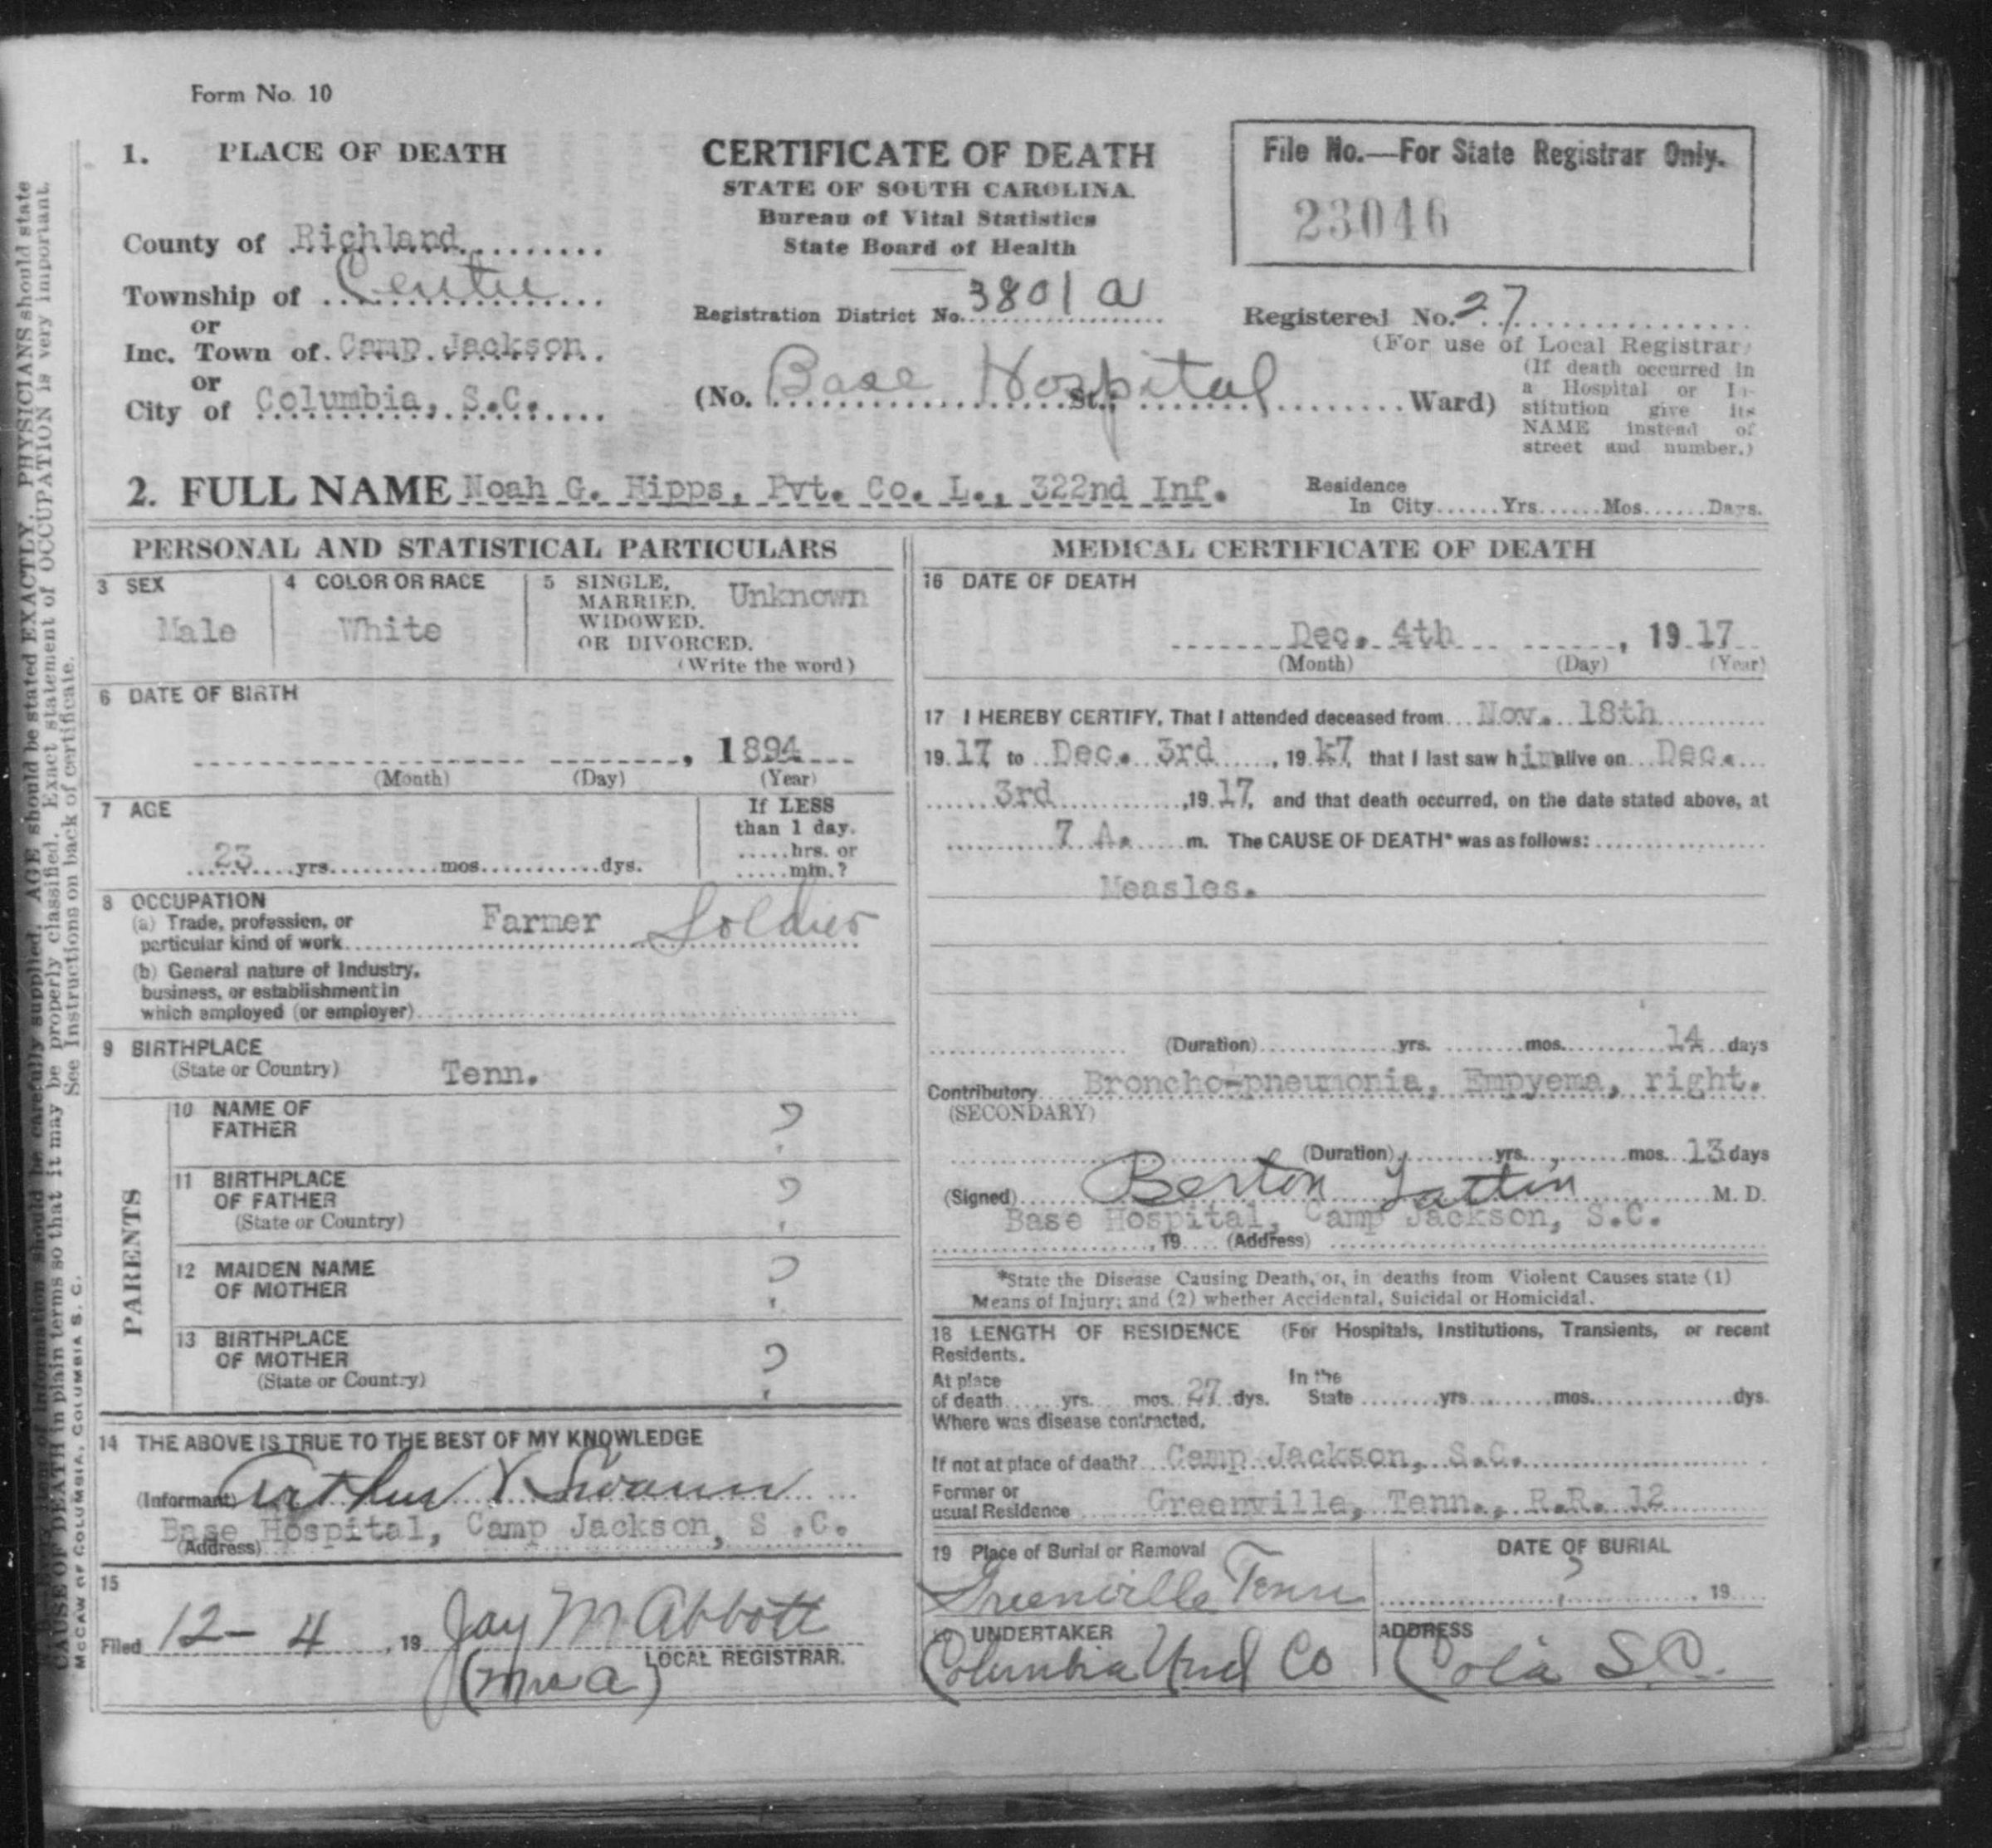 Form No. 10
1. PLACE OF DEATH
County of Richland
Township of Centre
or
Inc. Town of Camp Jackson
or
City of Columbia, S.C.
CERTIFICATE OF DEATH
STATE OF SOUTH CAROLINA.
Bureau of Vital Statistics
State Board of Health
Registration District No. 3801 a
(No. Base Hospital St.; Ward)
File No.—For State Registrar Only.
23046
Registered No. 27
(For use of Local Registrar)
(If death occurred in
a Hospital or In-
stitution give its
NAME instead of
street and number.)
2. FULL NAME Noah G. Hipps, Pvt. Co. L., 322nd Inf.
Residence
In City......Yrs......Mos......Days.
PERSONAL AND STATISTICAL PARTICULARS
3 SEX
Male
4 COLOR OR RACE
White
5 SINGLE,
MARRIED,
WIDOWED.
OR DIVORCED.
(Write the word)
Unknown
6 DATE OF BIRTH
, 1894
(Month) (Day) (Year)
7 AGE
23 yrs. mos. dys.
If LESS
than 1 day.
.....hrs. or
.....min.?
8 OCCUPATION
(a) Trade, profession, or
particular kind of work Farmer Soldier
(b) General nature of Industry,
business, or establishment in
which employed (or employer)
9 BIRTHPLACE
(State or Country) Tenn.
PARENTS
10 NAME OF
FATHER ?
11 BIRTHPLACE
OF FATHER
(State or Country) ?
12 MAIDEN NAME
OF MOTHER ?
13 BIRTHPLACE
OF MOTHER
(State or Country) ?
14 THE ABOVE IS TRUE TO THE BEST OF MY KNOWLEDGE
(Informant) Arthur Y Swann
Base Hospital, Camp Jackson, S .C.
(Address)
15
Filed 12- 4 , 19 Jay M Abbott
LOCAL REGISTRAR.
(Mrs a)
MEDICAL CERTIFICATE OF DEATH
16 DATE OF DEATH
Dec. 4th , 1917
(Month) (Day) (Year)
17 I HEREBY CERTIFY, That I attended deceased from Nov. 18th
1917 to Dec. 3rd , 19 k7 that I last saw him alive on Dec.
3rd ,1917, and that death occurred, on the date stated above, at
7 A. m. The CAUSE OF DEATH* was as follows:
Measles.
(Duration) yrs. mos. 14 days
Contributory Broncho-pneumonia, Empyema, right.
(SECONDARY)
(Duration) yrs. mos. 13 days
(Signed) Berton Lattin M. D.
Base Hospital, Camp Jackson, S.C.
, 19 (Address)
*State the Disease Causing Death, or, in deaths from Violent Causes state (1)
Means of Injury; and (2) whether Accidental, Suicidal or Homicidal.
18 LENGTH OF RESIDENCE (For Hospitals, Institutions, Transients, or recent
Residents.
At place
of death yrs. mos. 27 dys.
In the
State yrs. mos. dys.
Where was disease contracted,
If not at place of death? Camp Jackson, S.C.
Former or
usual Residence Greenville, Tenn., R.R. 12
19 Place of Burial or Removal
Greenville Tenn
DATE OF BURIAL
? , 19
UNDERTAKER
Columbia Und Co
ADDRESS
Cola S.C.
should be carefully supplied. AGE should be stated EXACTLY. PHYSICIANS should state
CAUSE OF DEATH in plain terms so that it may be properly classified. Exact statement of OCCUPATION is very important.
See Instructions on back of certificate.
McCAW OF COLUMBIA, COLUMBIA S. C.